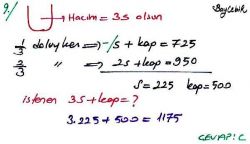 9/
BayÇEWİK
Hacim = 3s olsun
1/3 doluyken ⇒ -/s + kap = 725
2/3 " ⇒ 2s + kap = 950
s = 225 kap = 500
istenen 3s + kap = ?
3.225 + 500 = 1175
CEVAP: C